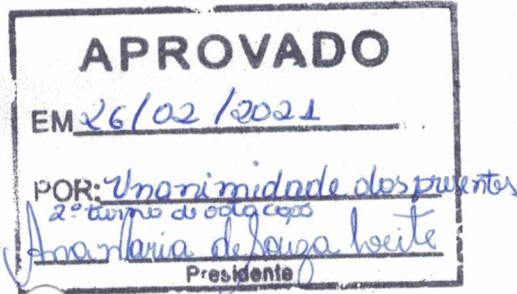 APROVADO
EM 26/02/2021
POR: Unanimidade dos presentes
2º turno de votação
Ana Maria de Souza Leite
Presidente